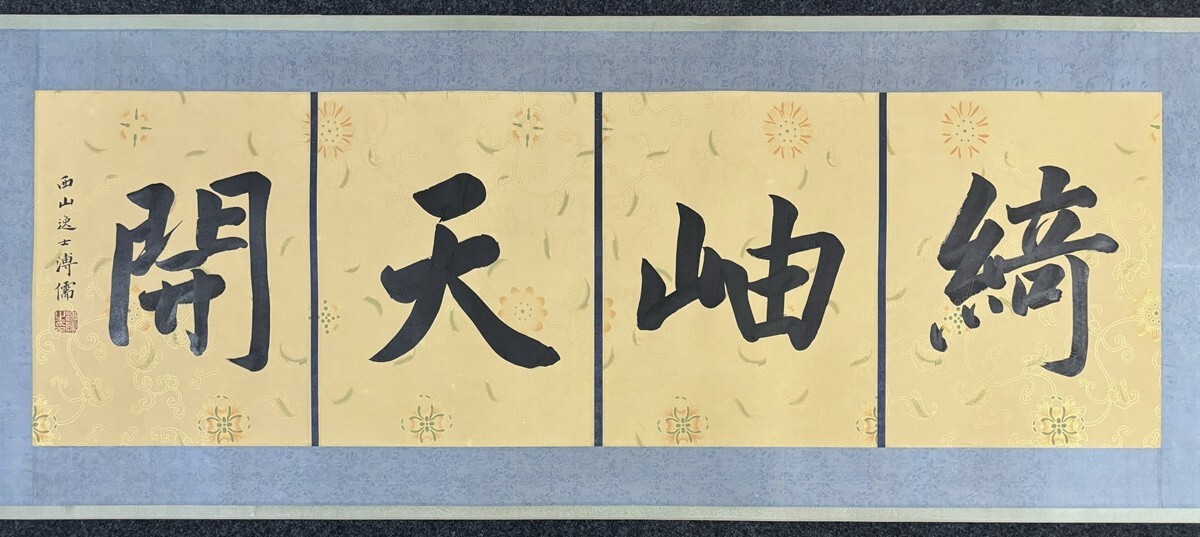 綺岫天開
西山逸士溥儒